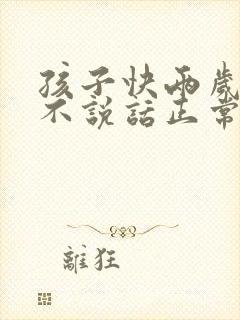 孩子快兩歲
不說話正常
離狂